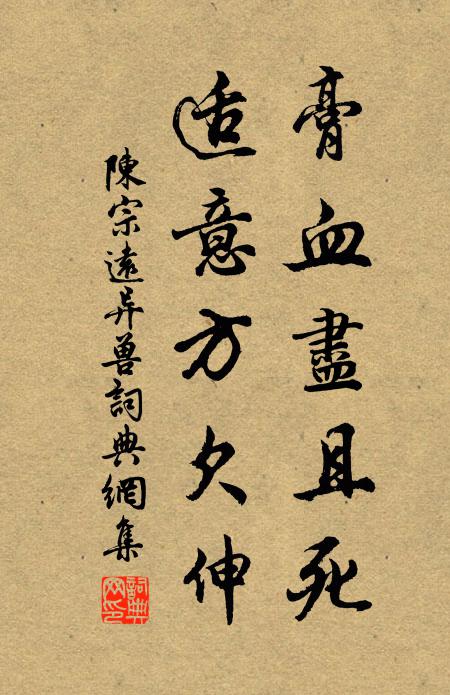 膏血盡且死
适意方欠伸
陳宗遠异兽詞典網集
詞典網印